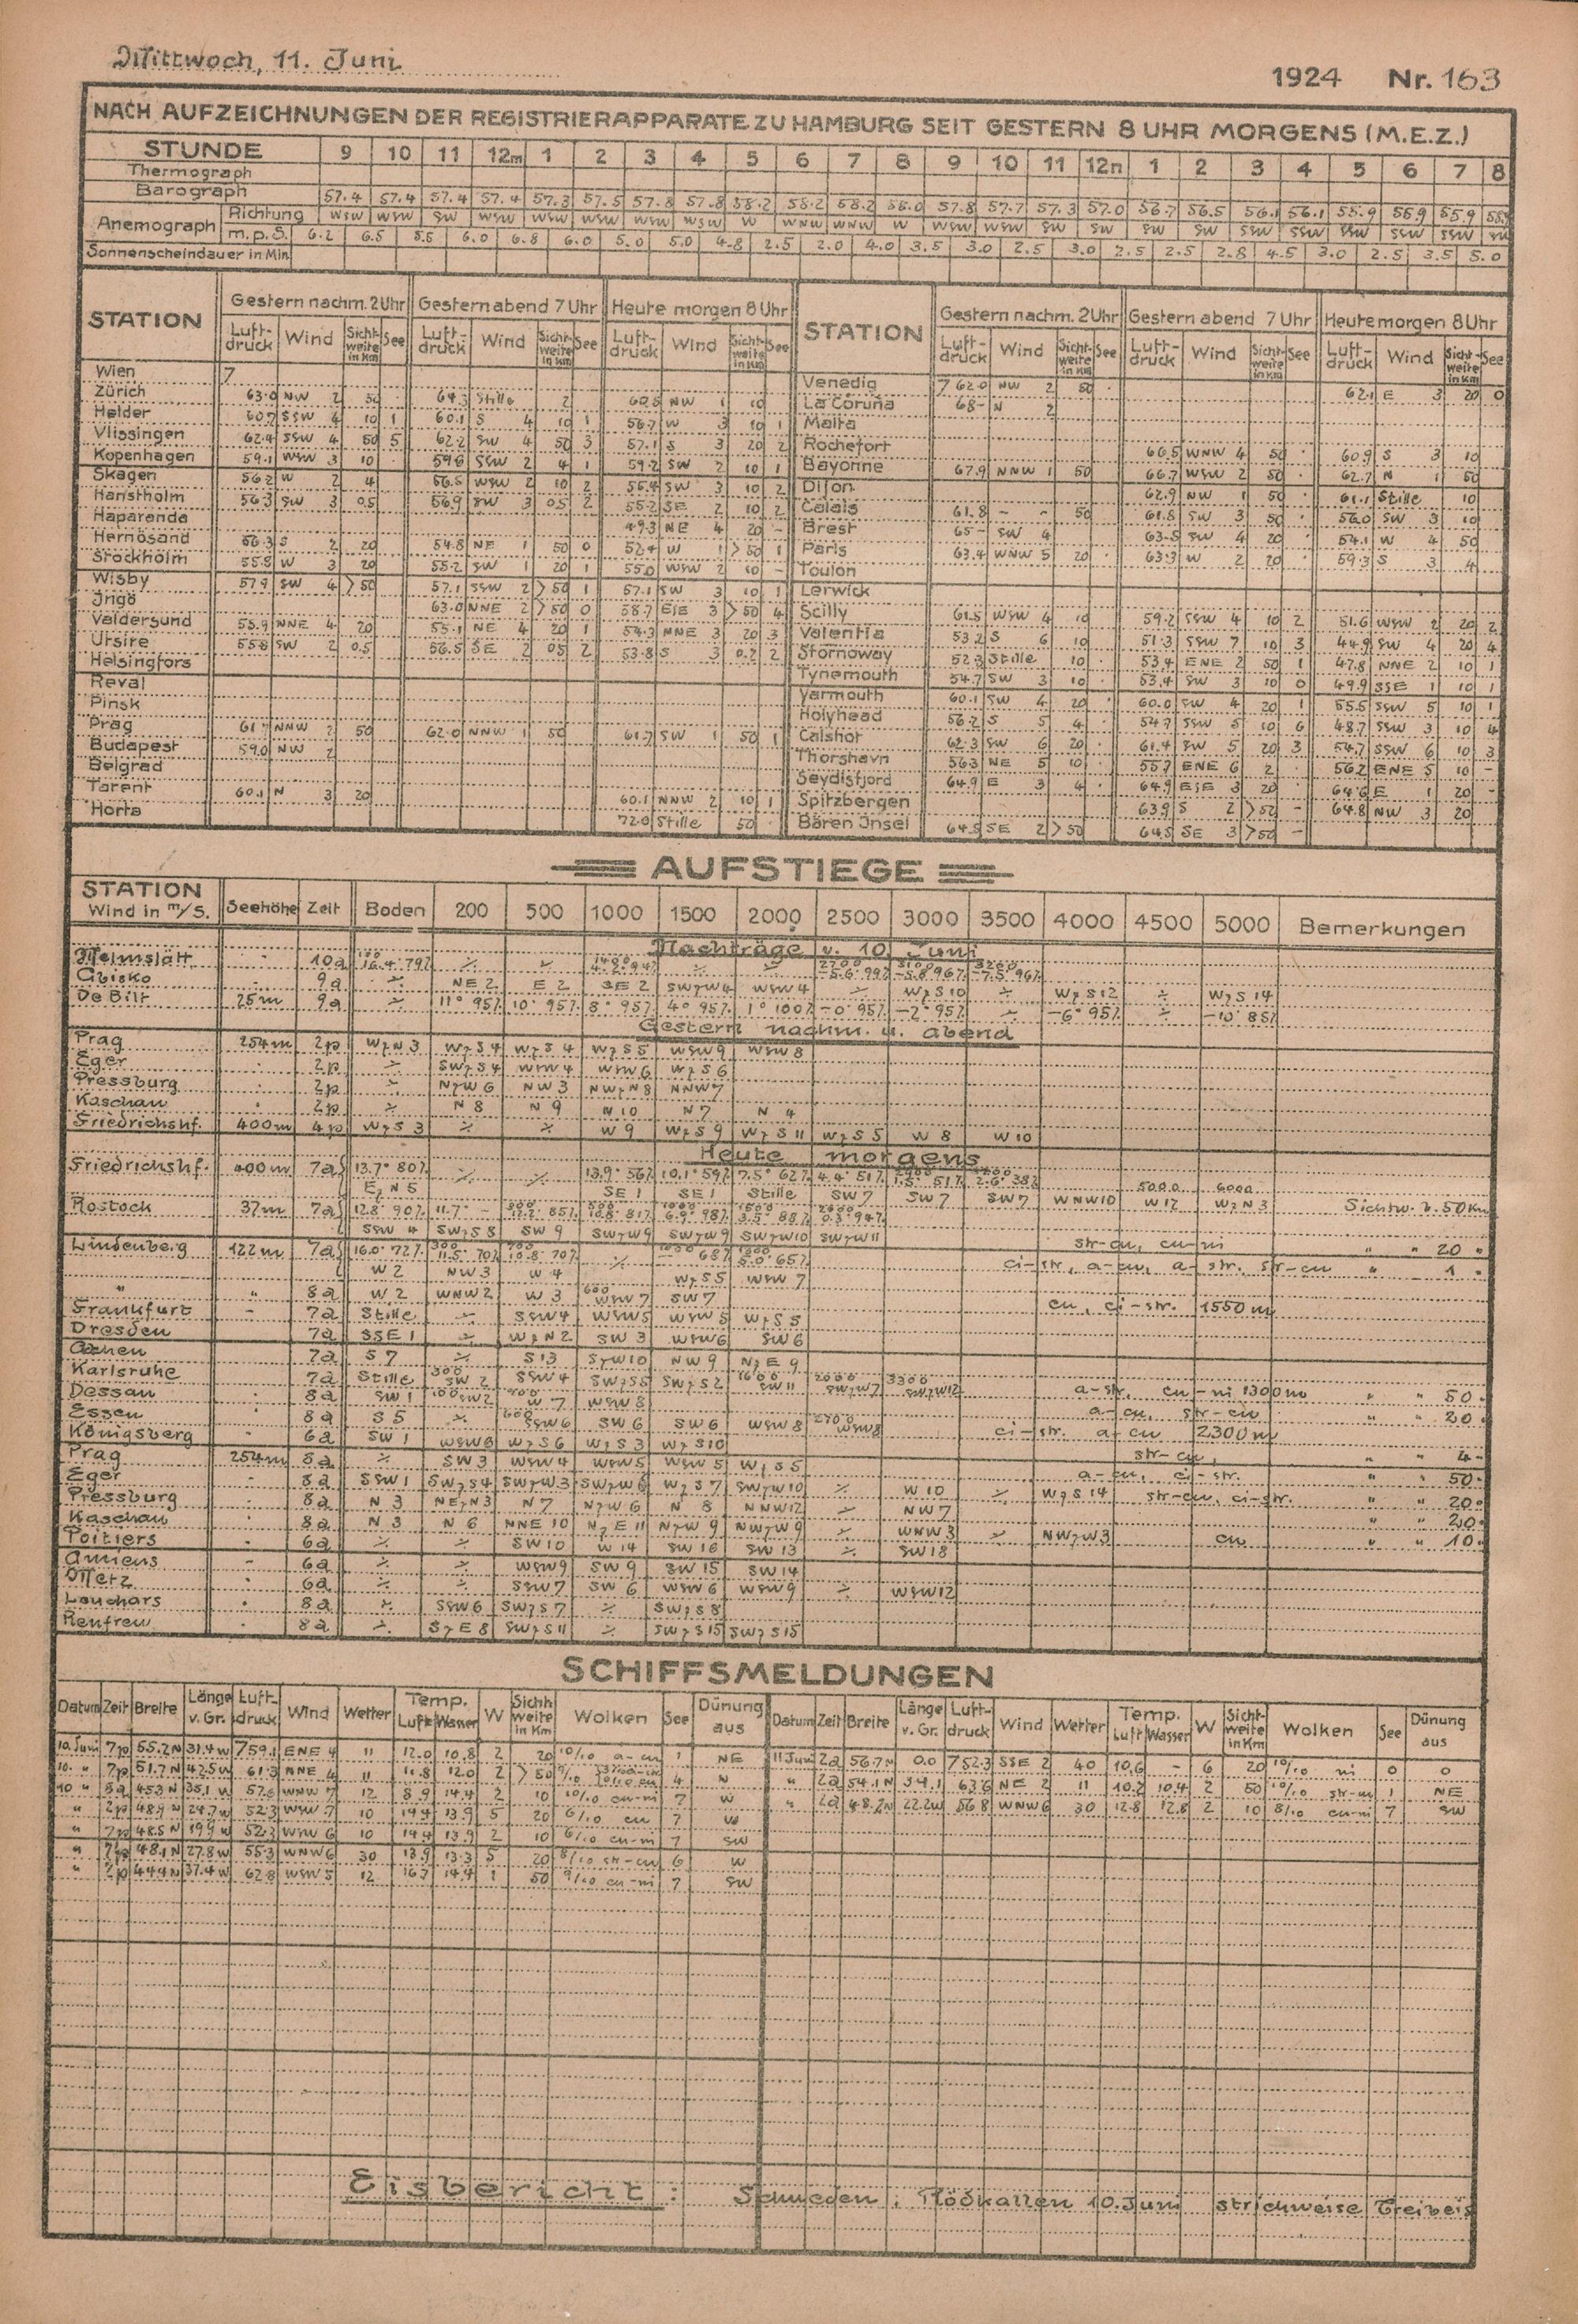 Mittwoch, 11. Juni
1924 Nr. 163
NACH AUFZEICHNUNGEN DER REGISTRIERAPPARATE ZU HAMBURG SEIT GESTERN 8 UHR MORGENS (M.E.Z.)
STUNDE 9 10 11 12m 1 2 3 4 5 6 7 8 9 10 11 12n 1 2 3 4 5 6 7 8
Thermograph
Barograph 57.4 57.4 57.4 57.4 57.3 57.5 57.8 57.8 58.2 58.2 58.2 58.0 57.8 57.7 57.3 57.0 56.7 56.5 56.1 56.1 55.9 55.9 55.9
Anemograph Richtung WSW WSW SW WSW WSW WSW WSW WSW W WNW WNW W WSW WSW SW SW SW SW SSW SSW SSW SSW SSW SW
m.p.S. 6.2 6.5 5.5 6.0 6.8 6.0 5.0 5.0 4.8 2.5 2.0 4.0 3.5 3.0 2.5 3.0 2.5 2.5 2.8 4.5 3.0 2.5 3.5 5.0
Sonnenscheindauer in Min.
STATION Gestern nachm. 2 Uhr Gestern abend 7 Uhr Heute morgen 8 Uhr STATION Gestern nachm. 2 Uhr Gestern abend 7 Uhr Heute morgen 8 Uhr
Luft-druck Wind Sicht-weite in Km See Luft-druck Wind Sicht-weite in Km See Luft-druck Wind Sicht-weite in Km See Luft-druck Wind Sicht-weite in Km See Luft-druck Wind Sicht-weite in Km See Luft-druck Wind Sicht-weite in Km See
Wien 7 Venedig 7 62.0 NW 2 50 62.1 E 3 20 0
Zürich 63.0 NW 2 50 64.3 Stille 2 60.5 NW 1 10 La Coruña 68- N 2
Helder 60.7 SSW 4 10 1 60.1 S 4 10 1 56.7 W 3 10 1 Malta
Vlissingen 62.4 SSW 4 50 5 62.2 SW 4 50 3 57.1 S 3 20 2 Rochefort 66.5 WNW 4 50 60.9 S 3 10
Kopenhagen 59.1 WSW 3 10 59.6 SSW 2 4 1 59.2 SW 2 10 1 Bayonne 67.9 NNW 1 50 66.7 WSW 2 50 62.7 N 1 50
Skagen 56.2 W 2 4 56.5 WSW 2 10 2 55.4 SW 3 10 2 Dijon 62.9 NW 1 50 61.1 Stille 10
Hanstholm 56.3 SW 3 0.5 56.9 SW 3 05 2 55.2 SE 2 10 2 Calais 61.8 - - 50 61.8 SW 3 50 56.0 SW 3 10
Haparanda 49.3 NE 4 20 - Brest 65- SW 4 63.5 SW 4 20 54.1 W 4 50
Hernösand 56.3 S 2 20 54.8 NE 1 50 0 52.4 W 1 >50 1 Paris 63.4 WNW 5 20 63.3 W 2 20 59.3 S 3 4
Stockholm 55.8 W 3 20 55.2 SW 1 20 1 55.0 WSW 2 10 - Toulon
Wisby 57.9 SW 4 >50 57.1 SSW 2 >50 1 57.1 SW 3 10 1 Lerwick
Ingö 63.0 NNE 2 >50 0 58.7 ESE 3 >50 4 Scilly 61.5 WSW 4 10 59.2 SSW 4 10 2 51.6 WSW 2 20 2
Valdersund 55.9 NNE 4 20 55.1 NE 4 20 1 54.3 NNE 3 20 3 Valentia 53.2 S 6 10 51.3 SSW 7 10 3 44.9 SW 4 20 4
Ursire 55.8 SW 2 0.5 56.5 SE 2 05 2 53.8 S 3 0.2 2 Stornoway 52.3 Stille 10 53.4 ENE 2 50 1 47.8 NNE 2 10 1
Helsingfors Tynemouth 54.7 SW 3 10 53.4 SW 3 10 0 49.9 SSE 1 10 1
Reval Yarmouth 60.1 SW 4 20 60.0 SW 4 20 1 55.5 SSW 5 10 1
Pinsk Holyhead 56.2 S 5 4 54.7 SSW 5 10 6 48.7 SSW 3 10 4
Prag 61.7 NNW 2 50 62.0 NNW 1 50 61.7 SW 1 50 1 Calshot 62.3 SW 6 20 61.4 SW 5 20 3 54.7 SSW 6 10 3
Budapest 59.0 NW 2 Thorshavn 56.3 NE 5 10 55.7 ENE 6 2 56.2 ENE 5 10 -
Belgrad Seydisfjord 64.9 E 3 4 64.9 ESE 3 20 64.6 E 1 20 -
Tarent 60.1 N 3 20 60.1 NNW 2 10 1 Spitzbergen 63.9 S 2 >50 - 64.8 NW 3 20
Horta 72.0 Stille 50 Bären Insel 64.5 SE 2 >50 64.5 SE 3 >50 -
AUFSTIEGE
STATION Wind in m/S. Seehöhe Zeit Boden 200 500 1000 1500 2000 2500 3000 3500 4000 4500 5000 Bemerkungen
Nachträge v. 10. Juni
Malmslätt 10a 16.4° 79%
Abisko 9a ÷ NE 2 E 2 SE 2 SW z W 4 WSW 4 ÷ W z S 10 ÷ W z S 12 ÷ W z S 14
De Bilt 25m 9a ÷ 11° 95% 10° 95% 8° 95% 4° 95% 1° 100% -0° 95% -2° 95% ÷ -6° 95% ÷ -10° 85%
Gestern nachm. u. abend
Prag 254m 2p W z N 3 W z S 4 W z S 4 W z S 5 WSW 9 WSW 8
Eger 2p ÷ SW z S 4 WSW 4 WSW 6 W z S 6
Pressburg 2p ÷ N z W 6 NW 3 NW z N 8 NNW 7
Kaschau 2p ÷ N 8 N 9 N 10 N 7 N 4
Friedrichshf. 400m 4p W z S 3 ÷ ÷ W 9 W z S 9 W z S 11 W z S 5 W 8 W 10
Heute morgens
Friedrichshf. 400m 7a 13.7° 80% ÷ ÷ 13.9° 56% 10.1° 59% 7.5° 62% 4.4° 51% 1.5° 51% 2.6° 38% 5000 6000
E z N 5 SE 1 SE 1 Stille SW 7 SW 7 SW 7 WNW 10 W 12 W z N 3 Sichtw. b. 50 Km
Rostock 37m 7a 12.8° 90% 11.7° - 85% 10.8° 81% 6.9° 98% 3.5° 88% 0.3° 94%
SSW 4 SW z S 8 SW 9 SW z W 9 SW z W 9 SW z W 10 SW z W 11 str-cu, cu-ni " " 20 "
Lindenberg 122m 7a 16.0° 72% 11.5° 70% 10.8° 70% ÷ 68% 5.0° 65% ci-str, a-cu, a-str, str-cu " 1 "
W 2 NW 3 W 4 W z S 5 WSW 7
" " 8a W 2 WNW 2 W 3 WSW 7 SW 7 cu, ci-str. 1550 m
Frankfurt - 7a Stille ÷ SSW 4 WSW 5 WSW 5 W z S 5
Dresden 7a SSE 1 ÷ W z N 2 SW 3 WSW 6 SW 6
Aachen 7a S 7 ÷ S 13 S z W 10 NW 9 N z E 9
Karlsruhe 7a Stille SW 2 SSW 4 SW z S 5 SW z S 2 SW 11 SW z W 7 SW z W 12 a-str, cu-ni 1300 m " " 50 "
Dessau 8a SW 1 SW 2 W 7 WSW 8 a-cu, str-cu " " 20 "
Essen 8a S 5 ÷ SSW 6 SW 6 SW 6 WSW 8 WSW 8 ci-str. a-cu 2300 m
Königsberg 6a SW 1 WSW 6 W z S 6 W z S 3 W z S 10 str-cu, " 4 "
Prag 254m 8a ÷ SW 3 WSW 4 WSW 5 WSW 5 W z S 5 a-cu, ci-str. " " 50 "
Eger 8a SSW 1 SW z S 4 SW z W 3 SW z W 6 W z S 7 SW z W 10 ÷ W 10 ÷ W z S 14 str-cu, ci-str. " " 20 "
Pressburg 8a N 3 NE z N 3 N 7 N z W 6 N 8 NNW 12 ÷ NW 7 " " 20 "
Kaschau 8a N 3 N 6 NNE 10 N z E 11 N z W 9 NW z W 9 ÷ WNW 3 ÷ NW z W 3 cu " " 10 "
Poitiers 6a ÷ ÷ SW 10 W 14 SW 16 SW 13 ÷ SW 18
Amiens 6a ÷ ÷ WSW 9 SW 9 SW 15 SW 14
Metz 6a ÷ ÷ SSW 7 SW 6 WSW 6 WSW 9 ÷ WSW 12
Leuchars 8a ÷ SSW 6 SW z S 7 ÷ SW z S 8
Renfrew 8a ÷ S z E 8 SW z S 11 ÷ SW z S 15 SW z S 15
SCHIFFSMELDUNGEN
Datum Zeit Breite Länge v. Gr. Luft-druck Wind Wetter Temp. Luft Wasser W Sicht-weite in Km Wolken See Dünung aus Datum Zeit Breite Länge v. Gr. Luft-druck Wind Wetter Temp. Luft Wasser W Sicht-weite in Km Wolken See Dünung aus
10. Juni 7p 55.2N 31.4W 759.1 ENE 4 11 12.0 10.8 2 20 10/10 a-cu 1 NE 11 Juni 2a 56.7N 0.0 752.3 SSE 2 40 10.6 - 6 20 10/10 ni 0 0
10. " 7p 51.7N 42.5W 61.3 NNE 4 11 11.8 12.0 2 >50 4 N " 2a 54.1N 34.1 63.6 NE 2 11 10.2 10.4 2 50 10/10 str-cu 1 NE
10 " 8a 45.3N 35.1W 57.6 WNW 7 12 8.9 14.4 2 10 10/10 cu-ni 7 W " 2a 48.2N 22.2W 56.8 WNW 6 30 12.8 12.8 2 10 8/10 cu-ni 7 SW
" 2p 48.9N 24.7W 52.3 WSW 7 10 14.4 13.9 5 20 6/10 cu 7 W
" 7p 48.5N 19.9W 52.3 WSW 6 10 14.4 13.9 2 10 6/10 cu-ni 7 SW
" 7p 48.1N 27.8W 55.3 WNW 6 30 13.9 13.3 5 20 8/10 str-cu 6 W
" 2p 44.4N 37.4W 62.8 WSW 5 12 16.7 14.4 1 50 9/10 cu-ni 7 SW
Eisbericht: Schweden: Rödkallen 10. Juni strichweise Treibeis